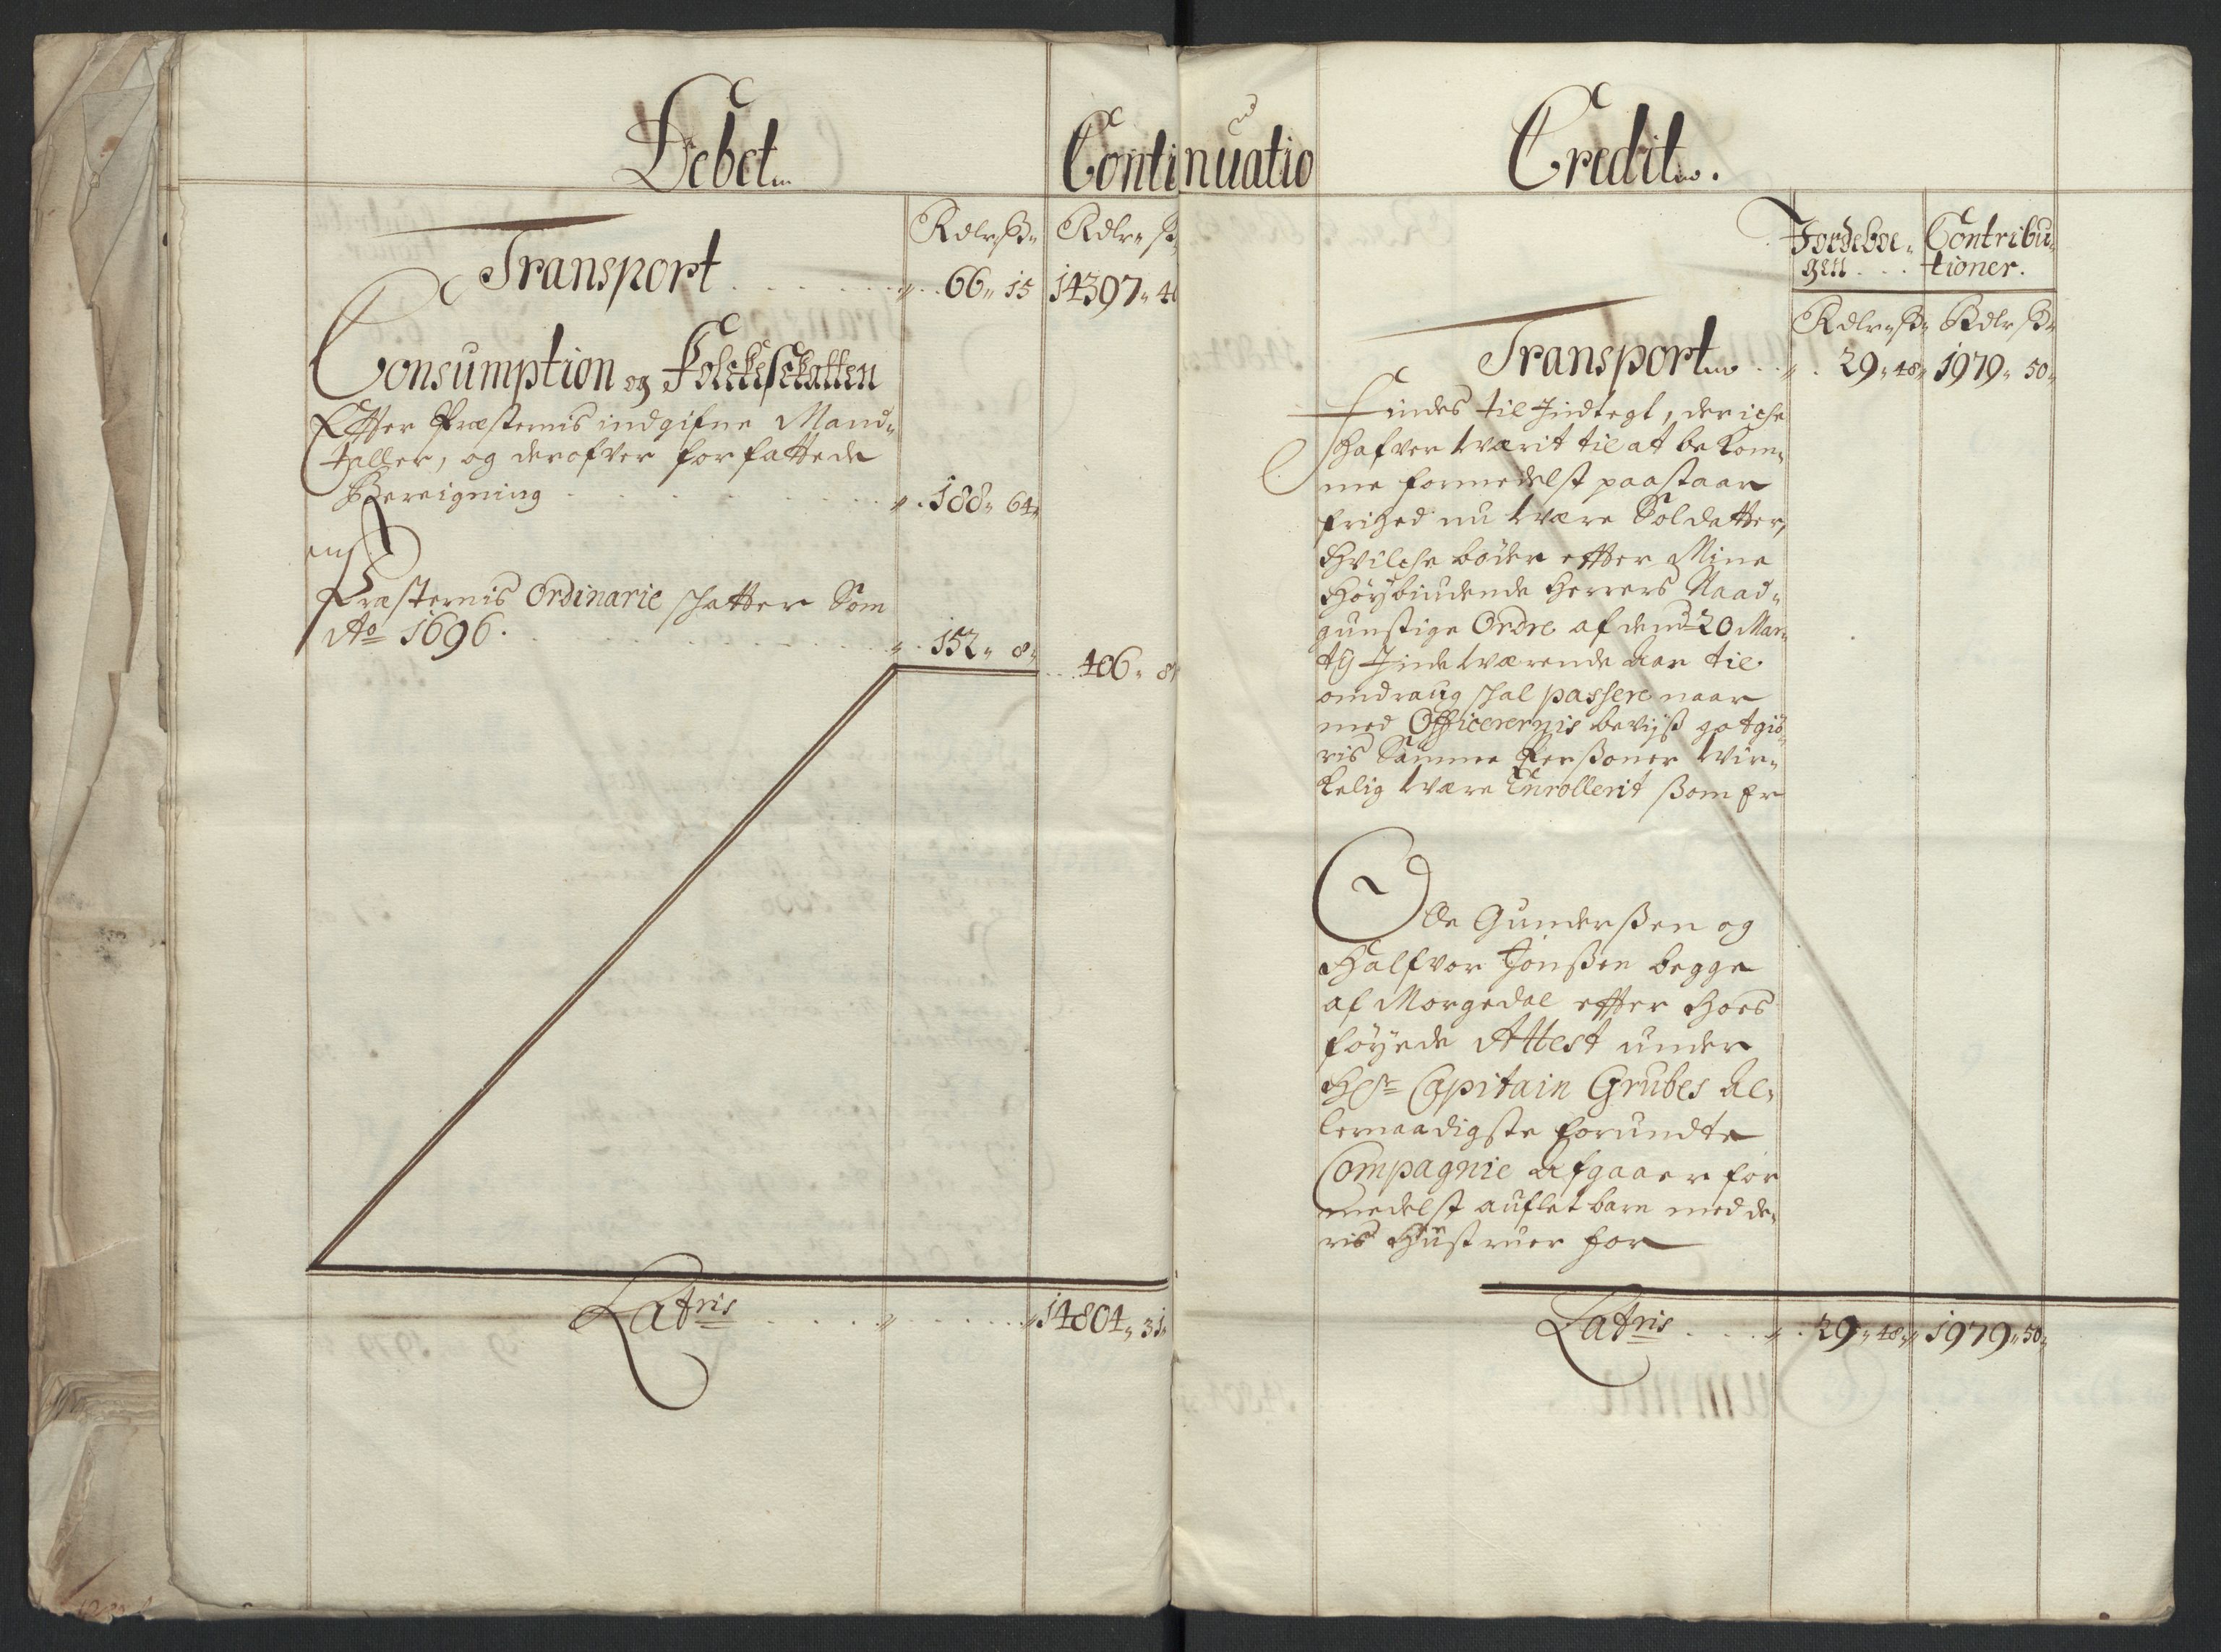 Debet
Conti
Rdlr ß
Rdlr ß
Transport
66 15
14397 40
Consumption og Folckeschatten
Efter Præsternis indgifne Mand-
taller, og derofver forfattede
Bereigning
188 64
Præsternis Ordinarie schatter Som
Ao 1696.
152 8
406 8
Latris
14804 31
nuatio
Credit.
Jordeboe- Contribu-
gen tioner.
Rdlr ß Rdlr ß
Transport
29 48 1979 50
Findes til Indtegt, der iche
hafver werit til at bekom-
me formedelst paastaar
frihed nu were Soldatter,
hvilche bøder efter Mine
Høybiudende Herrers Naad-
gunstige Ordre af dend 20 Mar-
tij Indewærende Aar til
omdraug schal passere naar
med Officerernis beviiß gotgiø-
ris Samme Perßoner wir-
kelig were Enrollerit ßom Er
Olle Gunderßen og
Halfvor Jonßen begge
af Morgedal efter hoes
føyede Attest under
Hr Capitain Grubes Al-
lernaadigste forundte
Compagnie Afgaaer for
medelst auflet barn med de-
ris Hustruer for
Latris
29 48 1979 50